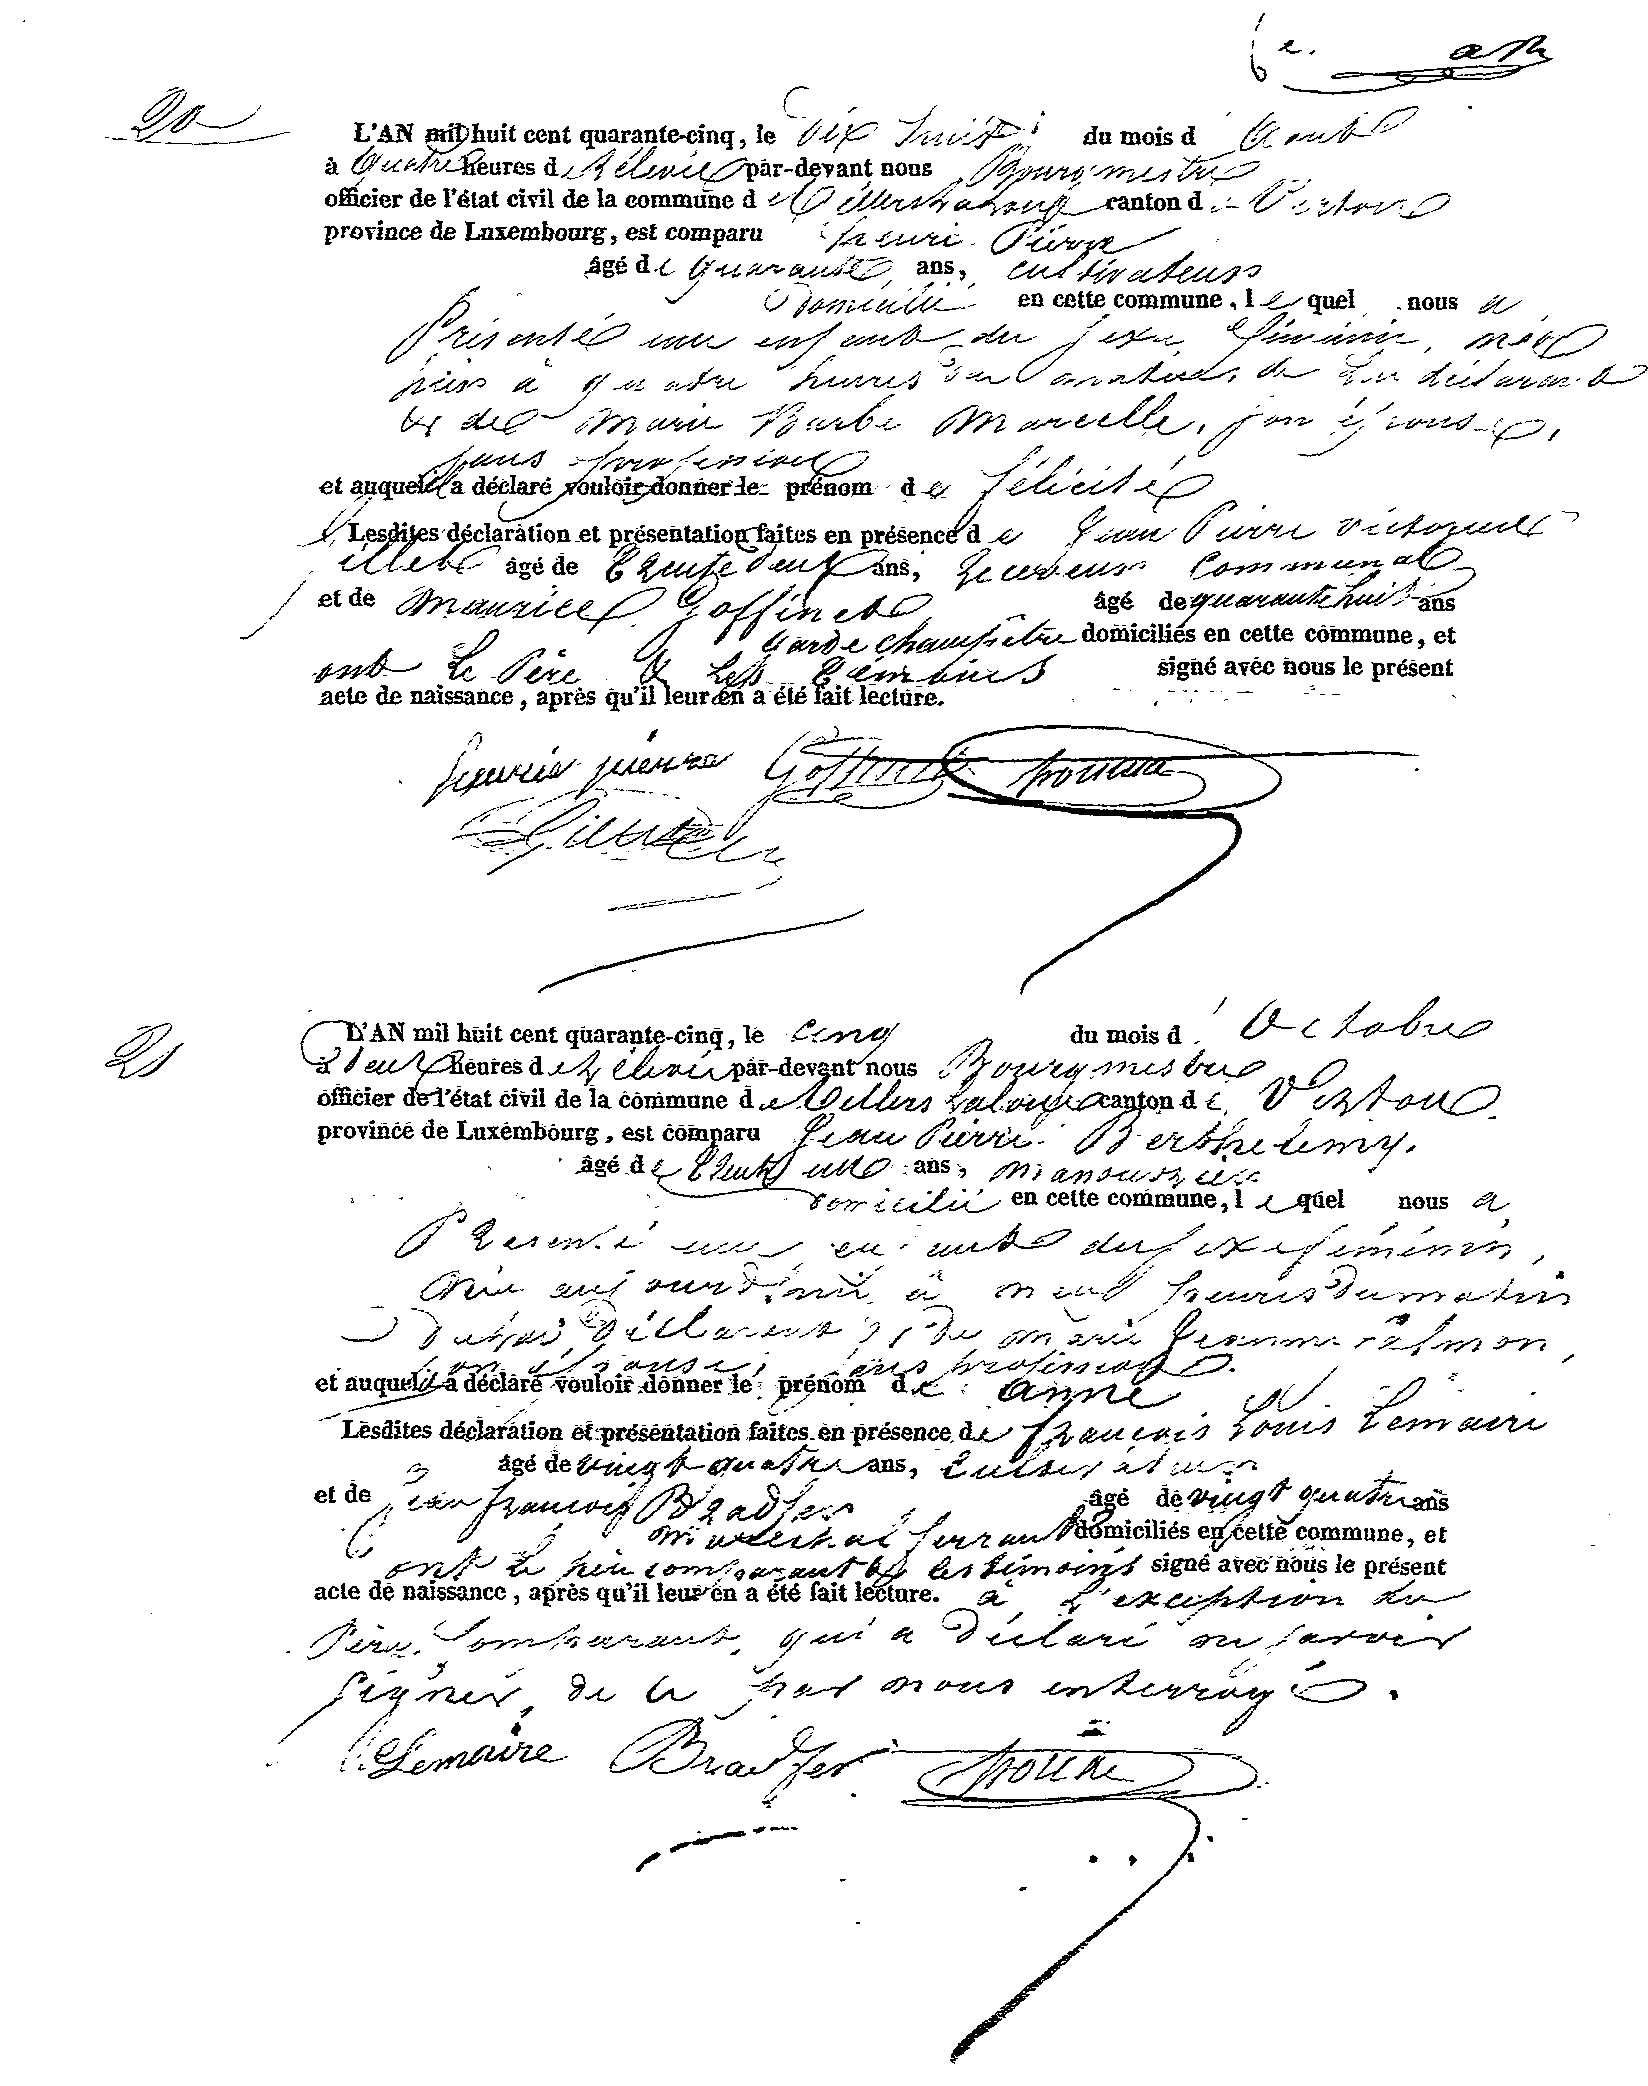 6e.
20
L'AN mil huit cent quarante-cinq, le dix huit du mois d'Aout
à quatre heures de Relevée par-devant nous Bourgmestre
officier de l'état civil de la commune de Villers la Loue canton de Virton
province de Luxembourg, est comparu henri Pierre
âgé de quarante ans, cultivateur
Domicilié en cette commune, lequel nous a
Présenté une enfant du sexe féminin, née
hier à quatre heures du matin, de Lui déclarant
& de Marie Barbe Marcelle, son épouse,
sans profession
et auquel il a déclaré vouloir donner le prénom de félicité
Lesdites déclaration et présentation faites en présence de Jean Pierre
âgé de trente deux ans, Receveur Communal
et de Maurice Goffinet âgé de quarante huit ans
Garde champêtre domiciliés en cette commune, et
ont Le Père & Les témoins signé avec nous le présent
acte de naissance, après qu'il leur en a été fait lecture.
henri pierre Goffinet
21
L'AN mil huit cent quarante-cinq, le cinq du mois d'Octobre
à deux heures de Relevée par-devant nous Bourgmestre
officier de l'état civil de la commune de Villers La Loue canton de Virton
province de Luxembourg, est comparu Jean Pierre Berthelemy.
âgé de trente un ans, manouvrier
domicilié en cette commune, lequel nous a
Présenté une enfant du sexe féminin,
Née aujourd'hui à neuf heures du matin
De Lui Déclarant & De marie Jeanne
son épouse, sans profession.
et auquel il a déclaré vouloir donner le prénom de anne
Lesdites déclaration et présentation faites en présence de françois Louis Lemaire
âgé de vingt quatre ans, Cultivateur
et de Jean françois Bradfer âgé de vingt quatre ans
maréchal ferrant domiciliés en cette commune, et
ont Le père comparant & les témoins signé avec nous le présent
acte de naissance, après qu'il leur en a été fait lecture. à L'exception du
Père Comparant, qui a Déclaré ne savoir
signer, de ce par nous interrogé.
Lemaire Bradfer